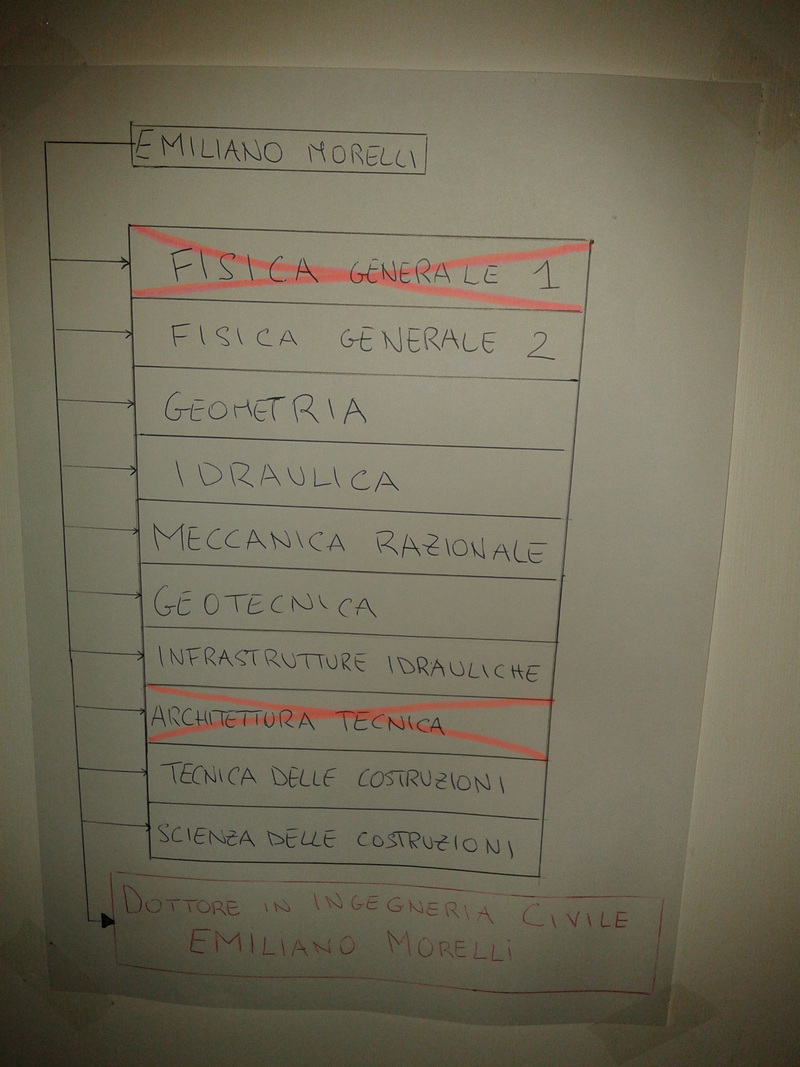 EMILIANO MORELLI
FISICA GENERALE 1
FISICA GENERALE 2
GEOMETRIA
IDRAULICA
MECCANICA RAZIONALE
GEOTECNICA
INFRASTRUTTURE IDRAULICHE
ARCHITETTURA TECNICA
TECNICA DELLE COSTRUZIONI
SCIENZA DELLE COSTRUZIONI
DOTTORE IN INGEGNERIA CIVILE
EMILIANO MORELLi